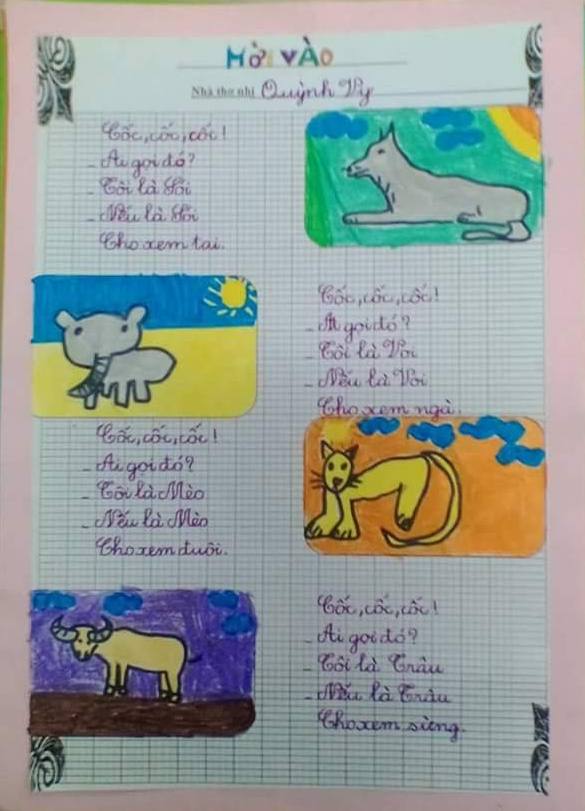 MỜI VÀO
Nhà thơ nhí Quỳnh Vy
Cốc, cốc, cốc!
- Ai gọi đó?
- Tôi là Sói
- Nếu là Sói
Cho xem tai.
Cốc, cốc, cốc!
- Ai gọi đó?
- Tôi là Voi
- Nếu là Voi
Cho xem ngà.
Cốc, cốc, cốc!
- Ai gọi đó?
- Tôi là Mèo
- Nếu là Mèo
Cho xem đuôi.
Cốc, cốc, cốc!
- Ai gọi đó?
- Tôi là Trâu
- Nếu là Trâu
Cho xem sừng.